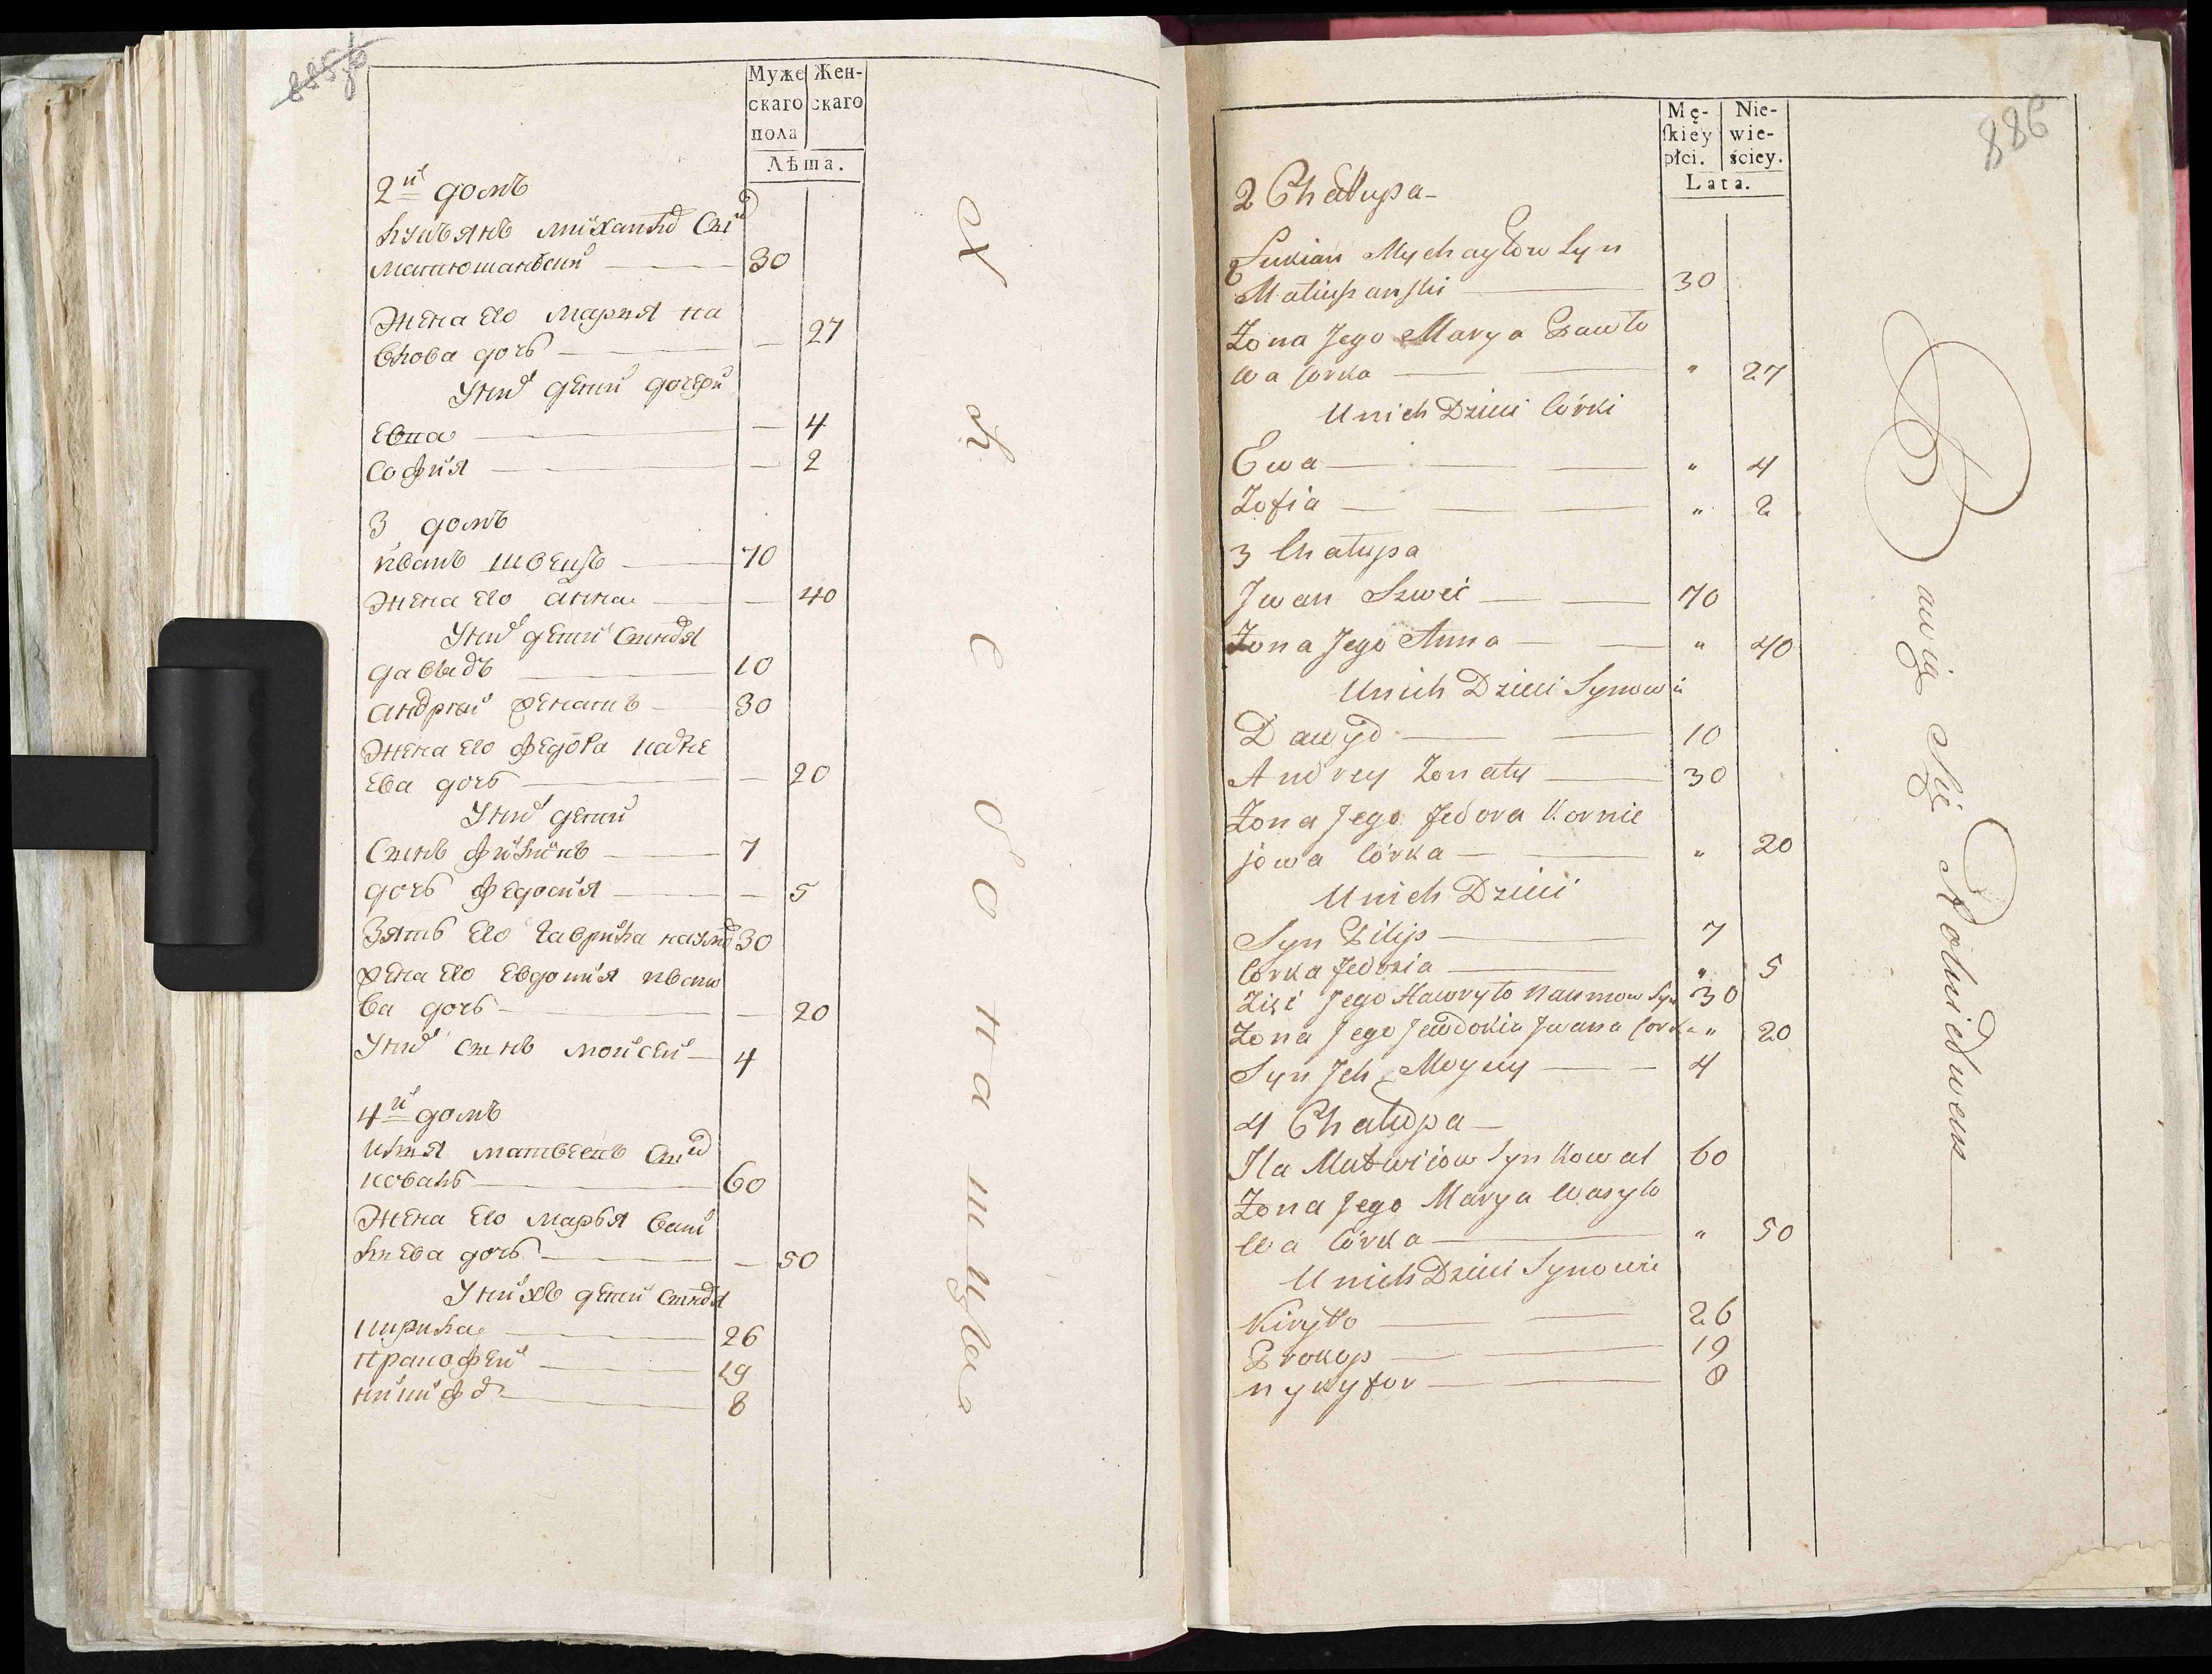 885 об
Муже Жен-
скаго скаго
пола
Лѣта.
2й домъ
Лукьянъ михайловъ Синъ
матюшанский 30
Жена его Марья па
влова дочь — 27
У нихъ дети дочери
Евва — 4
София — 2
3 домъ
иванъ швецъ 70
Жена его анна — 40
У нихъ дети Синовя
давыдъ 10
андрей женатъ 30
Жена его федора карне
ева дочь — 20
У нихъ дети
Синъ филипъ 7
дочь федосия — 5
Зять его гаврила наумовъ 30
жена его евдокия ивано
ва дочь — 20
У нихъ синъ мойсей 4
4й домъ
илья матвеевъ Синъ
коваль 60
Жена его марья васи
лиева дочь — 50
У нихъ дети Синовя
кирила 26
прокофей 19
никифоръ 8
Хлебопашца
886
Mę- Nie-
skiey wie-
płci. ściey.
Lata.
2 Chałupa
Łukian Mychayłow Syn
Matiuszanski 30
Żona Jego Marya Pawło
wa Corka " 27
U nich Dzieci Córki
Ewa " 4
Zofia " 2
3 Chałupa
Jwan Szwec 70
Żona Jego Anna " 40
U nich Dzieci Synowie
Dawyd 10
Andrey Żonaty 30
Żona Jego Fedora Kornie
jowa Córka " 20
U nich Dzieci
Syn Pilip 7
Córka Fedosia " 5
Zięć Jego Hawryło Naumow Syn 30
Żona Jego Jewdokia Jwana Corka " 20
Syn Jch Moysey 4
4 Chałupa
Jla Matwiiow Syn Kowal 60
Żona Jego Marya Wasylo
wa Córka " 50
U nich Dzieci Synowie
Kiryło 26
Prokop 19
Nykyfor 8
Bawią się Rolnictwem